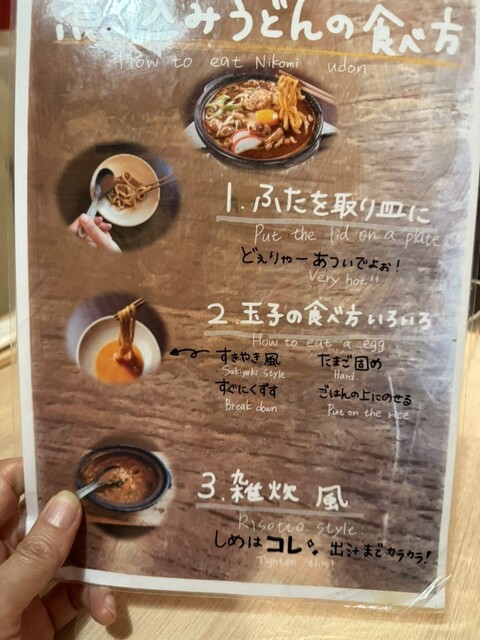 煮込みうどんの食べ方
How to eat Nikomi udon
1.ふたを取り皿に
Put the lid on a plate
どえりゃーあついでよぉ!
Very hot!!
2.玉子の食べ方いろいろ
How to eat a egg
すきやき風 たまご固め
Sukiyaki style Hard
すぐにくずす ごはんの上にのせる
Break down Put on the rice
3.雑炊風
Risotto style
しめはコレ。出汁までカラカラ!
Tighten this!